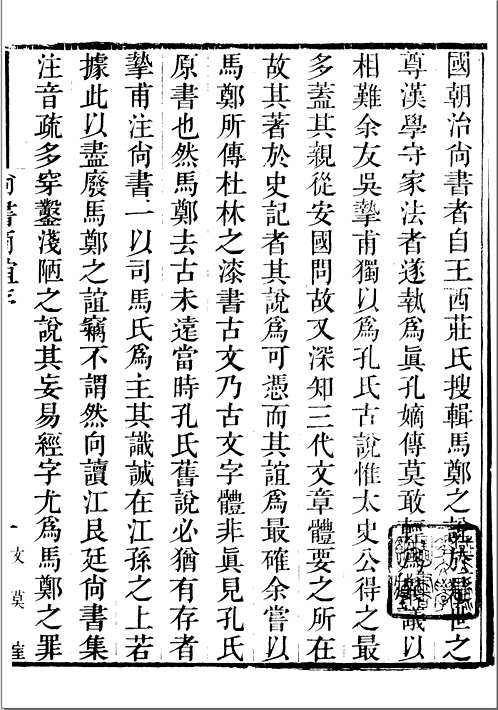 國朝治尙書者自王西莊氏搜輯馬鄭之說於世之
尊漢學守家法者遂執爲眞孔嫡傳莫敢議以
相難余友吳摯甫獨以爲孔氏古說惟太史公得之最
多蓋其親從安國問故又深知三代文章體要之所在
故其著於史記者其說爲可憑而其誼爲最確余嘗以
馬鄭所傳杜林之漆書古文乃古文字體非眞見孔氏
原書也然馬鄭去古未遠當時孔氏舊說必猶有存者
摯甫注尙書一以司馬氏爲主其識誠在江孫之上若
據此以盡廢馬鄭之誼竊不謂然向讀江艮廷尙書集
注音疏多穿鑿淺陋之說其妄易經字尤爲馬鄭之罪
尙書商誼序 一 文莫室